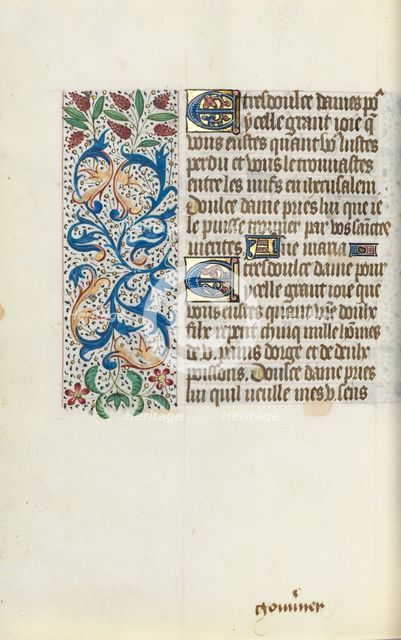 E tresdoulce dame po^r
ycelle grant ioie q̄
vous eustes quant vo9 leustes
perdu et vous le trouuastes
entre les iuifs en iherusalem
Doulce dame pries lui que ie
le puisse trouuer par vos saintes
merites Aue maria
E tresdoulce dame pour
ycelle grant ioie que
vous eustes quant vr̄e doulx
filz repeut chincq mille hōmes
de v. pains dorge et de deulx
poissons. Doulce dame pries
lui quil vueille mes v. sens
gouu'ner
Heritage
Heritage